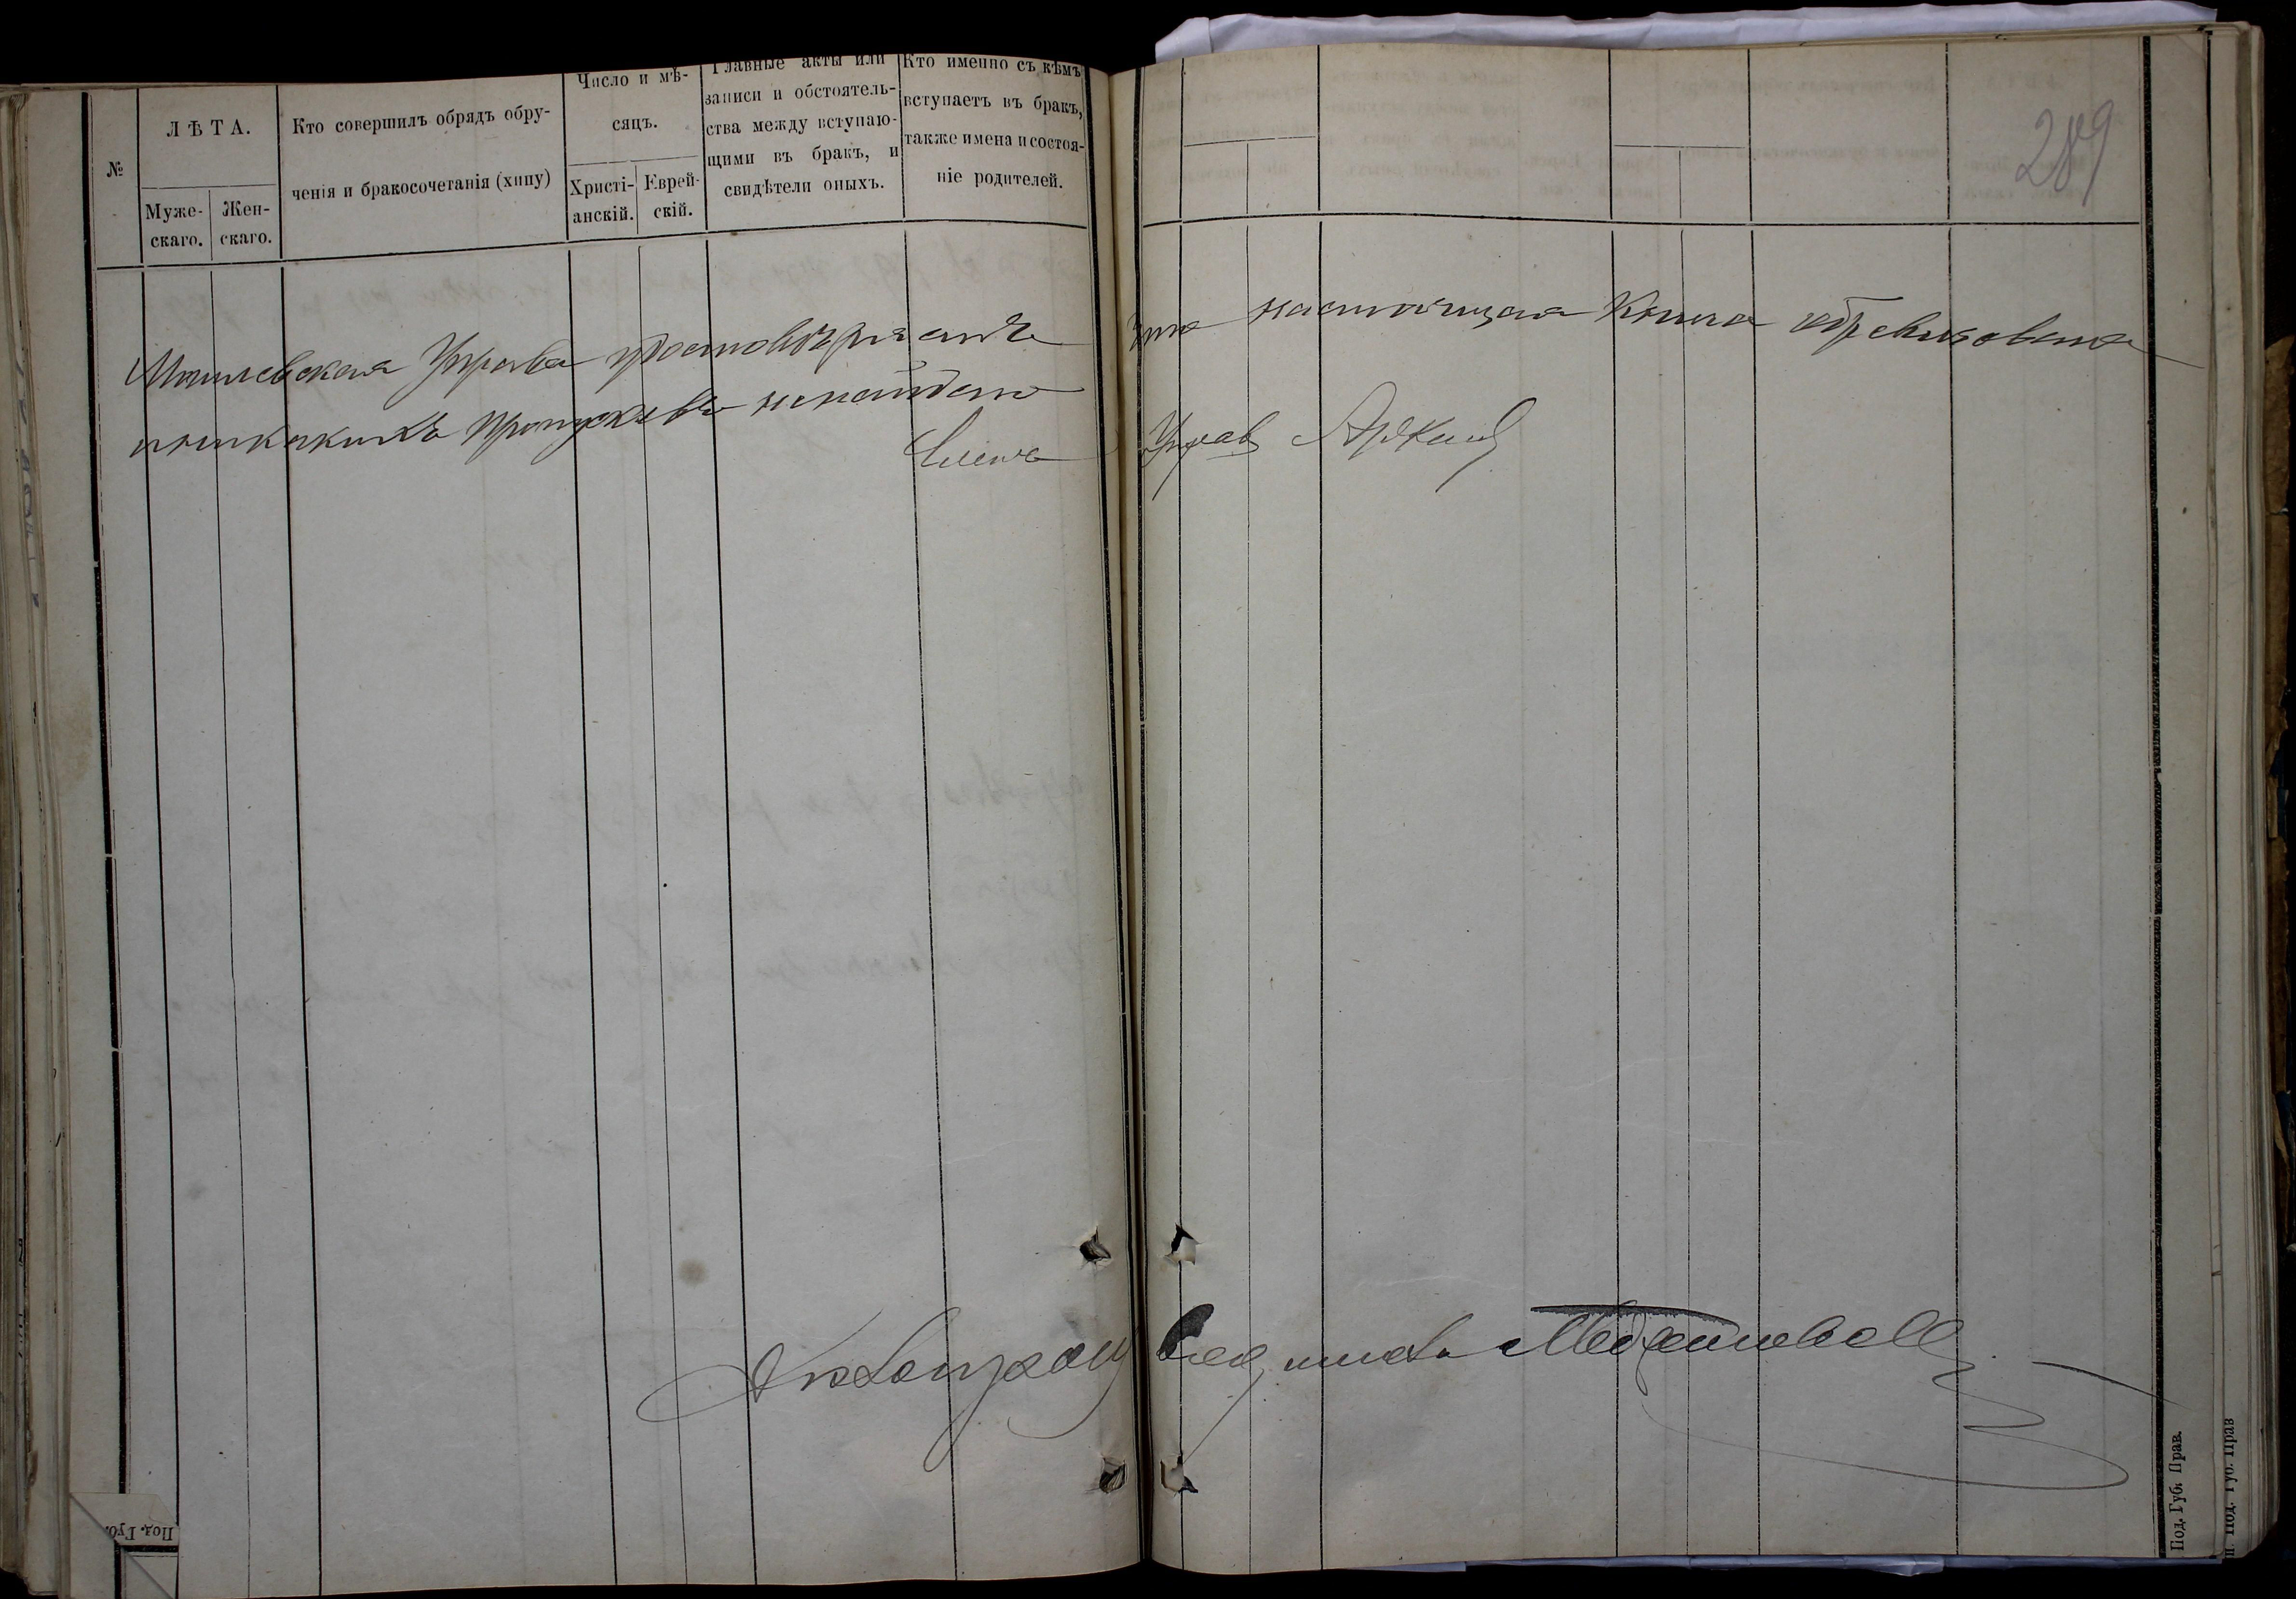 №
ЛѢТА.
Муже-
скаго.
Жен-
скаго.
Кто совершилъ обрядъ обру-
ченія и бракосочетанія (хипу)
Число и мѣ-
сяцъ.
Христі-
анскій.
Еврей-
скій.
Главные акты или
записи и обстоятель-
ства между вступаю-
щими въ бракъ, и
свидѣтели оныхъ.
Кто именно съ кѣмъ
вступаетъ въ бракъ,
также имена и состоя-
ніе родителей.
289
Могилевская Управа удостовѣряетъ что настоящая Книга обревизована
и никакихъ пропусковъ ненайдено
Члена Управ
Под. Губ. Прав.
Под. Губ. Прав
Под. Губ.